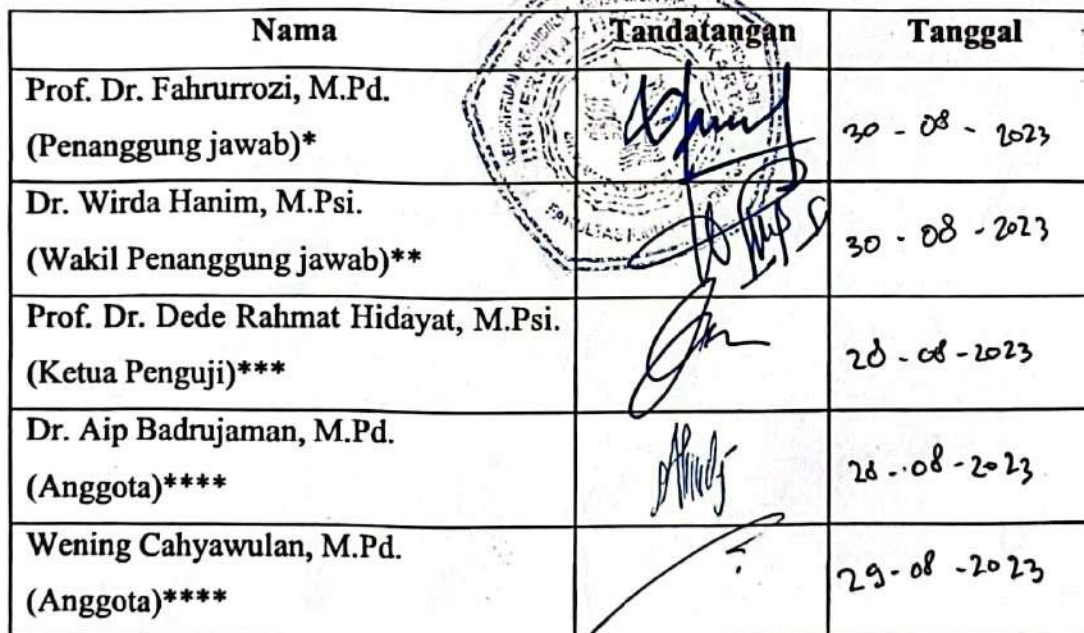 Nama Tandatangan Tanggal
Prof. Dr. Fahrurrozi, M.Pd.
(Penanggung jawab)*
30 - 08 - 2023
Dr. Wirda Hanim, M.Psi.
(Wakil Penanggung jawab)**
30 - 08 - 2023
Prof. Dr. Dede Rahmat Hidayat, M.Psi.
(Ketua Penguji)***
28 - 08 - 2023
Dr. Aip Badrujaman, M.Pd.
(Anggota)****
28 - 08 - 2023
Wening Cahyawulan, M.Pd.
(Anggota)****
29 - 08 - 2023